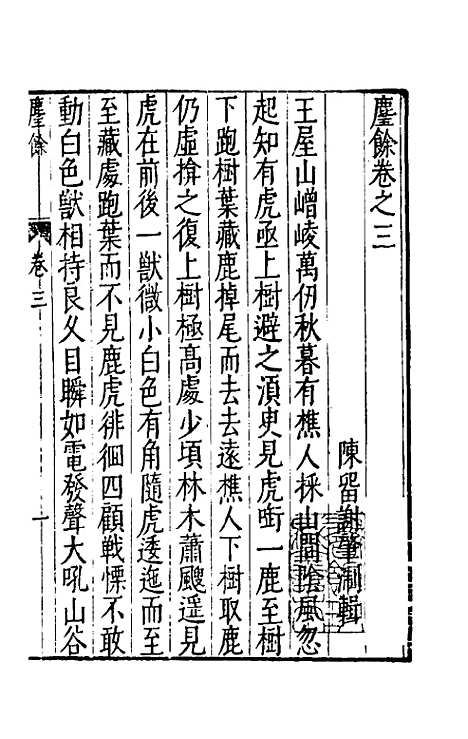 麈餘卷之三
陳留謝肇淛輯
王屋山嶒崚萬仞秋暮有樵人採山間陰風忽
起知有虎亟上樹避之湏臾見虎啣一鹿至樹
下跑樹葉藏鹿掉尾而去去遠樵人下樹取鹿
仍虛揜之復上樹極高處少頃林木蕭颼遥見
虎在前後一獸微小白色有角隨虎逶迤而至
至藏處跑葉而不見鹿虎徘徊四顧戰慄不敢
動白色獸相持良久目瞬如電發聲大吼山谷
麈餘
卷三
一